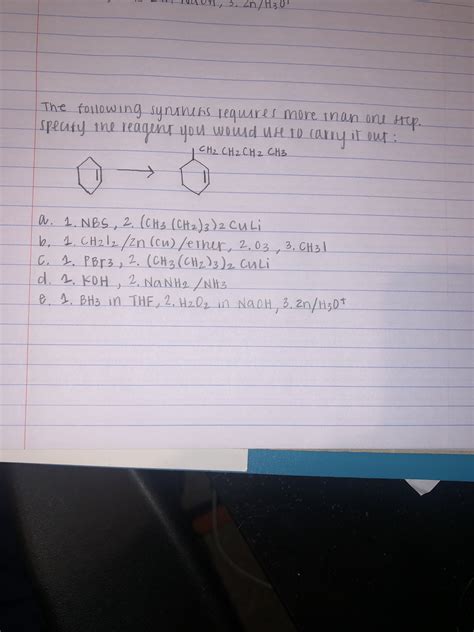 NaOH, 3. Zn/H3O+
The following synthesis requires more than one step.
specify the reagent you would use to carry it out:
CH2 CH2CH2 CH3
a. 1. NBS, 2. (CH3(CH2)3)2 CuLi
b. 1. CH2I2/Zn(Cu)/ether, 2. O3, 3. CH3I
c. 1. PBr3, 2. (CH3(CH2)3)2 CuLi
d. 1. KOH, 2. NaNH2/NH3
e. 1. BH3 in THF, 2. H2O2 in NaOH, 3. Zn/H3O+